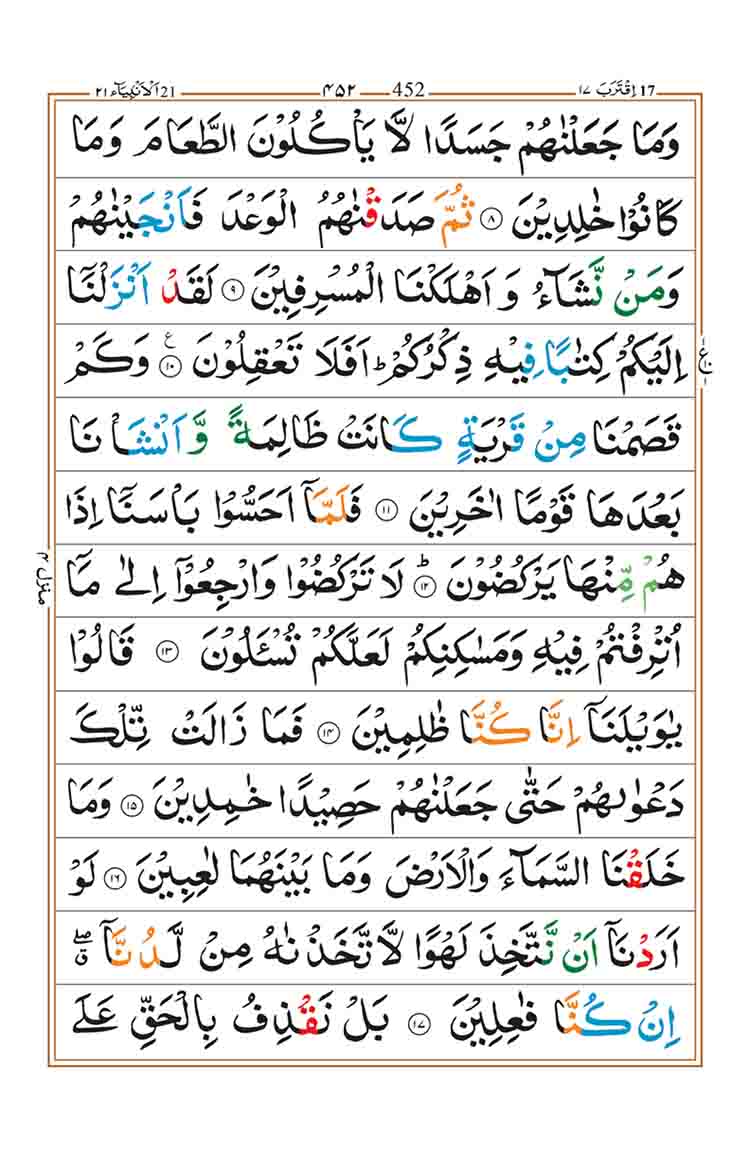 اِقْتَرَبَ ١٧ 17 452 ۴۵۲ 21 اَلْاَنْۢبِيَآء ٢١
وَمَا جَعَلْنٰهُمْ جَسَدًا لَّا يَاْكُلُوْنَ الطَّعَامَ وَمَا
كَانُوْا خٰلِدِيْنَ ۝٨ ثُمَّ صَدَقْنٰهُمُ الْوَعْدَ فَاَنْجَيْنٰهُمْ
وَمَنْ نَّشَآءُ وَاَهْلَكْنَا الْمُسْرِفِيْنَ ۝٩ لَقَدْ اَنْزَلْنَاۤ
اِلَيْكُمْ كِتٰبًا فِيْهِ ذِكْرُكُمْ ؕ اَفَلَا تَعْقِلُوْنَ ۝١٠ ع وَكَمْ
قَصَمْنَا مِنْ قَرْيَةٍ كَانَتْ ظَالِمَةً وَّاَنْشَاْنَا
بَعْدَهَا قَوْمًا اٰخَرِيْنَ ۝١١ فَلَمَّاۤ اَحَسُّوْا بَاْسَنَاۤ اِذَا
هُمْ مِّنْهَا يَرْكُضُوْنَ ؕ۝١٢ لَا تَرْكُضُوْا وَارْجِعُوْۤا اِلٰى مَاۤ
اُتْرِفْتُمْ فِيْهِ وَمَسٰكِنِكُمْ لَعَلَّكُمْ تُسْـَٔلُوْنَ ۝١٣ قَالُوْا
يٰوَيْلَنَاۤ اِنَّا كُنَّا ظٰلِمِيْنَ ۝١٤ فَمَا زَالَتْ تِّلْكَ
دَعْوٰىهُمْ حَتّٰى جَعَلْنٰهُمْ حَصِيْدًا خٰمِدِيْنَ ۝١٥ وَمَا
خَلَقْنَا السَّمَآءَ وَالْاَرْضَ وَمَا بَيْنَهُمَا لٰعِبِيْنَ ۝١٦ لَوْ
اَرَدْنَاۤ اَنْ نَّتَّخِذَ لَهْوًا لَّاتَّخَذْنٰهُ مِنْ لَّدُنَّاۤ ۖ ق
اِنْ كُنَّا فٰعِلِيْنَ ۝١٧ بَلْ نَقْذِفُ بِالْحَقِّ عَلَى
منزل ۴